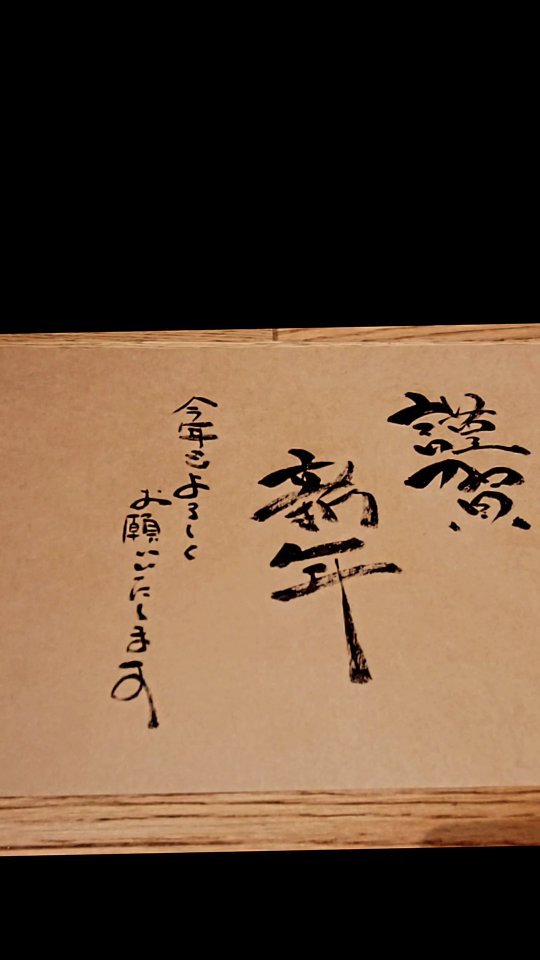 謹賀
新年
今年もよろしく
お願いいたします